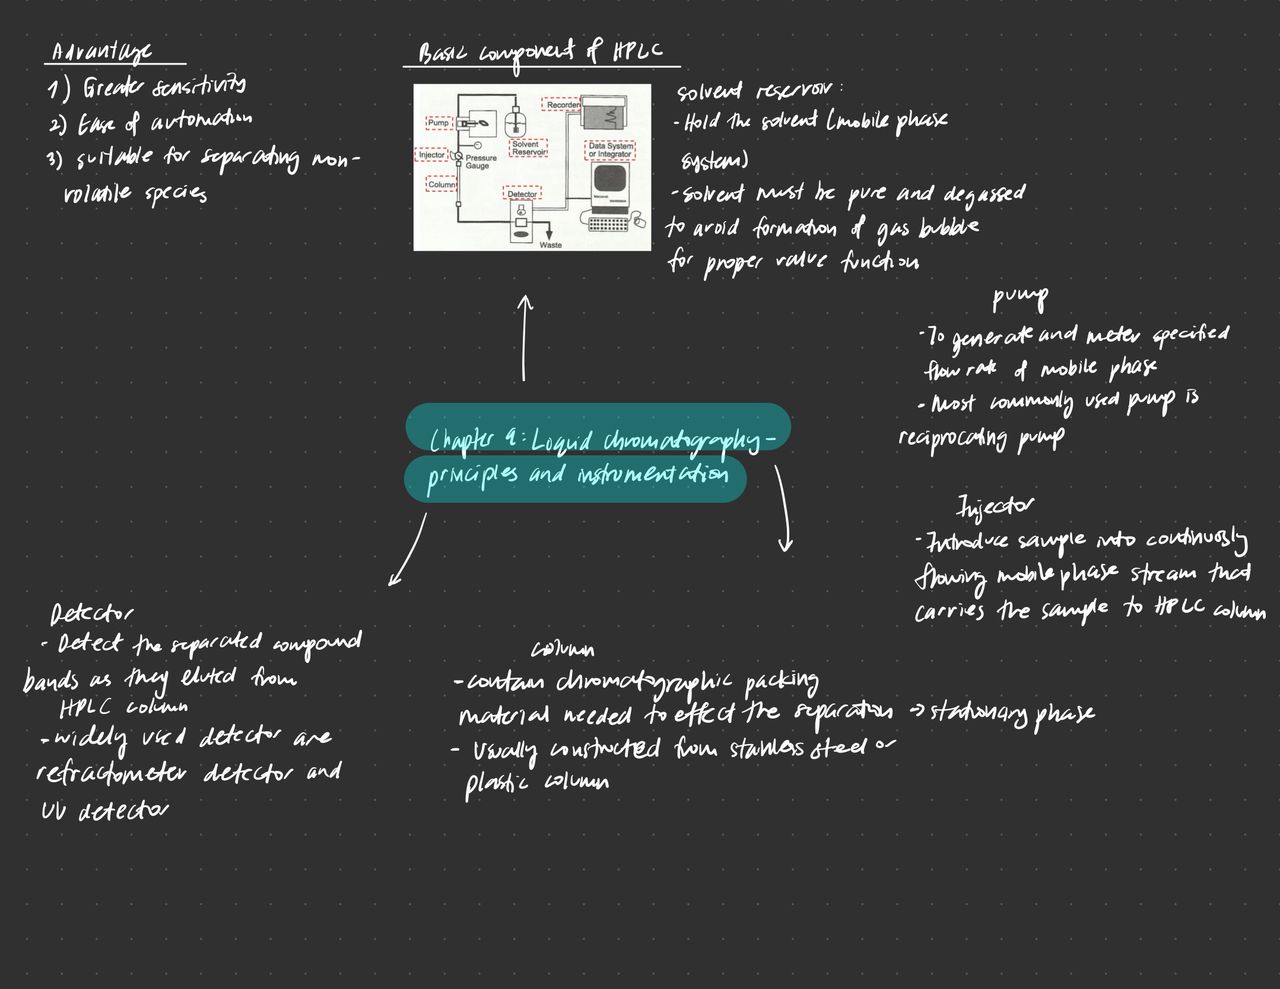 Advantage
1) Greater sensitivity
2) Ease of automation
3) suitable for separating non-
volatile species
Basic component of HPLC
Pump
Injector
Pressure
Gauge
Column
Solvent
Reservoir
Recorder
Data System
or Integrator
Detector
Waste
solvent reservoir:
- Hold the solvent (mobile phase
system)
- Solvent must be pure and degassed
to avoid formation of gas bubble
for proper valve function
pump
- To generate and meter specified
flow rate of mobile phase
- Most commonly used pump is
reciprocating pump
Chapter 9: Liquid chromatography-
principles and instrumentation
Injector
- Introduce sample into continuosly
flowing mobile phase stream that
carries the sample to HPLC column
Detector
- Detect the separated compound
bands as they eluted from
HPLC column
- widely used detector are
refractometer detector and
UV detector
column
- contain chromatographic packing
material needed to effect the separation → stationary phase
- Usually constructed from stainless steel or
plastic column